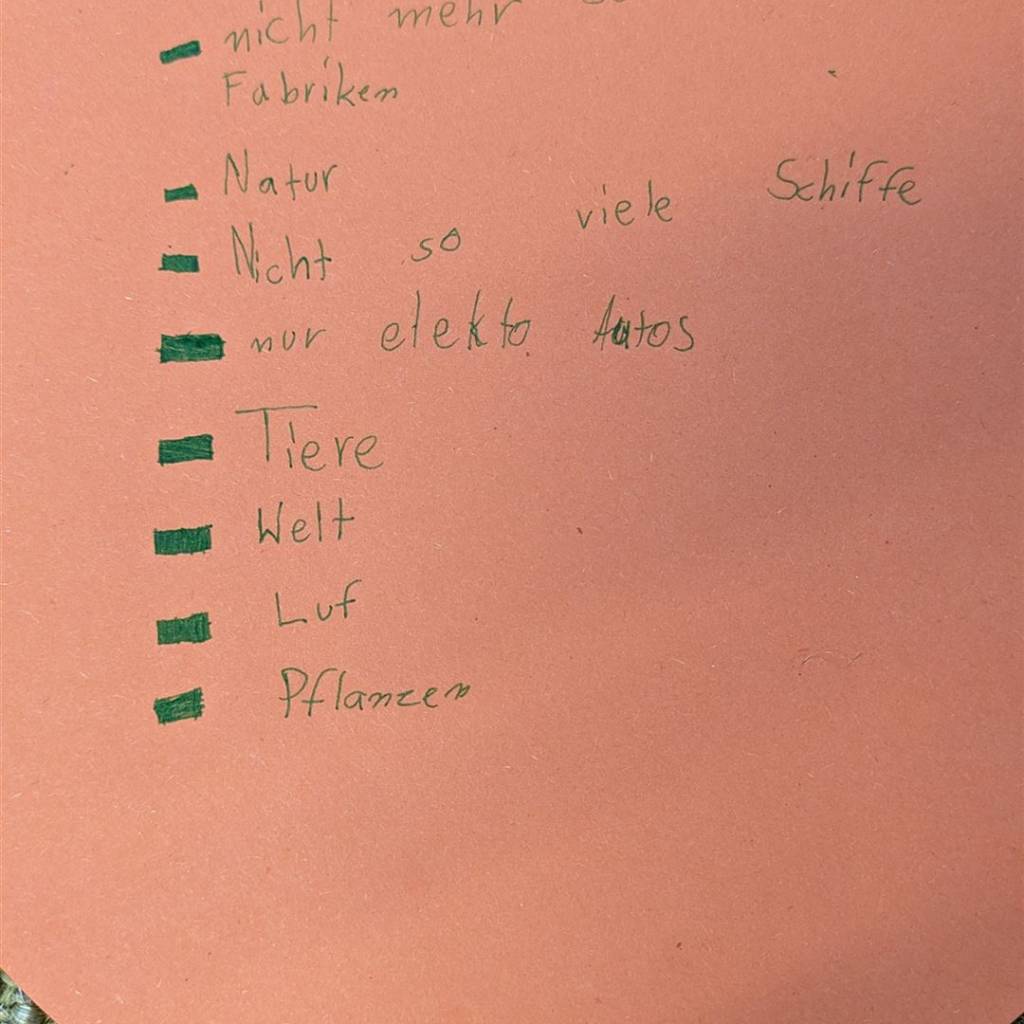 nicht mehr
Fabriken
Natur
Nicht so viele Schiffe
nur elekto Autos
Tiere
Welt
Luf
Pflanzen